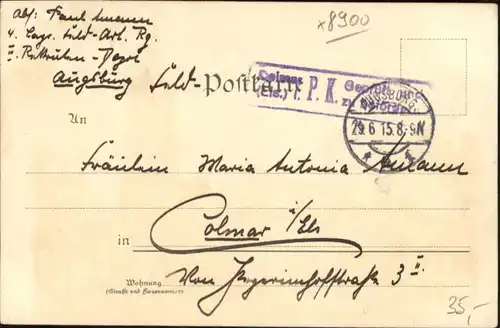 Abs: Paul Amann
4. bayr. Feld-Art. Rg.
II. Rekruten-Depot
Augsburg
*8900
Feld-Postkarte
Colmar P. K. Geprüft und
(Els.) zu befördern
AUGSBURG
29.6 15.8-9N
An
Fräulein Maria Antonia Amann
in Colmar i/Els
Wohnung
(Straße und Hausnummer)
3 II.
35,-